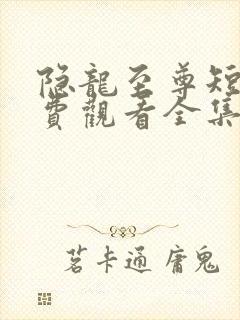 隐龍至尊短
費觀看全集
茗卡通 庸鬼